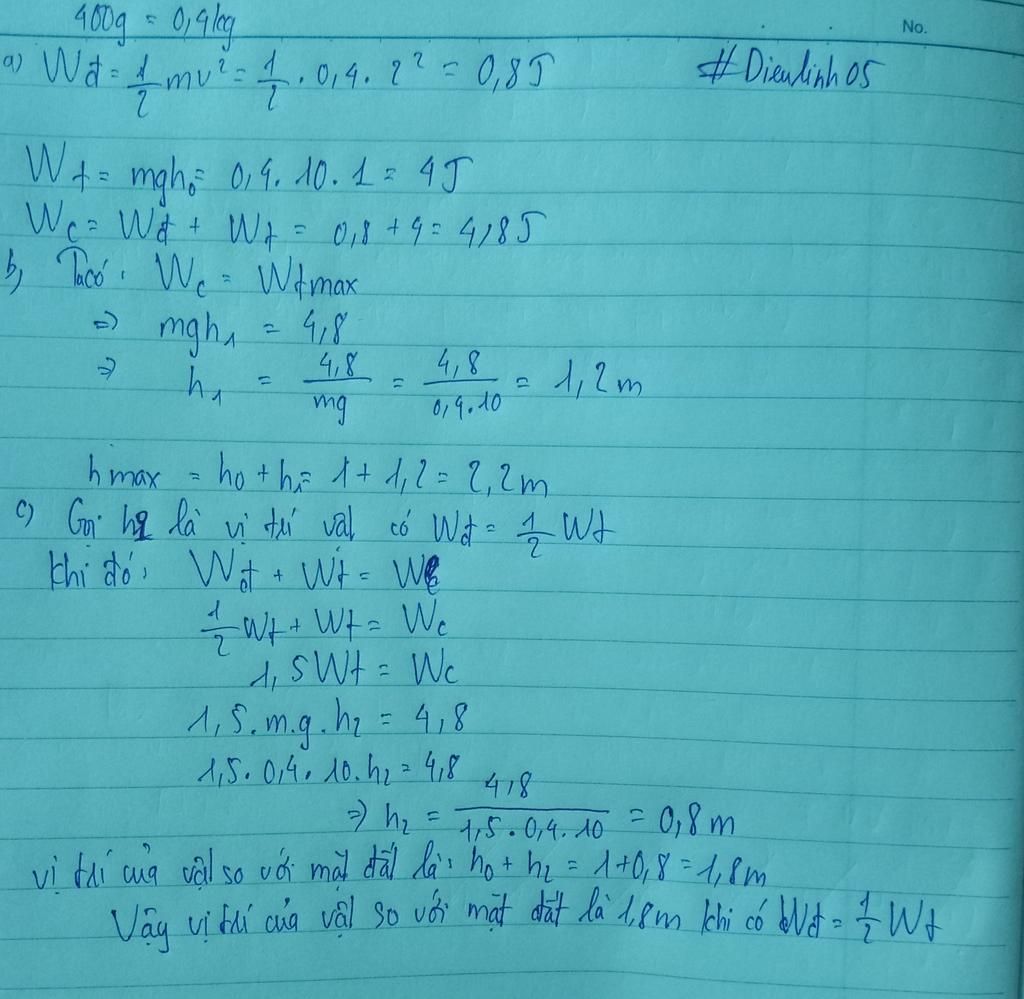 400g = 0,4kg
No.
a) Wđ = 1/2 mv² = 1/2 . 0,4 . 2² = 0,8J
#Dieulinh05
Wt = mgh₀ = 0,4 . 10 . 1 = 4J
Wc = Wđ + Wt = 0,8 + 4 = 4,8J
b) Ta có: Wc = Wtmax
=> mgh₁ = 4,8
=> h₁ = 4,8/mg = 4,8/0,4.10 = 1,2m
hmax = h₀ + h₁ = 1 + 1,2 = 2,2m
c) Gọi h2 là vị trí vật có Wđ = 1/2 Wt
khi đó: Wđ + Wt = Wc
1/2 Wt + Wt = Wc
1,5Wt = Wc
1,5.m.g.h₂ = 4,8
1,5.0,4.10.h₂ = 4,8
=> h₂ = 4,8/1,5.0,4.10 = 0,8m
vị trí của vật so với mặt đất là: h₀ + h₂ = 1+0,8 = 1,8m
Vậy vị trí của vật so với mặt đất là 1,8m khi có Wđ = 1/2 Wt